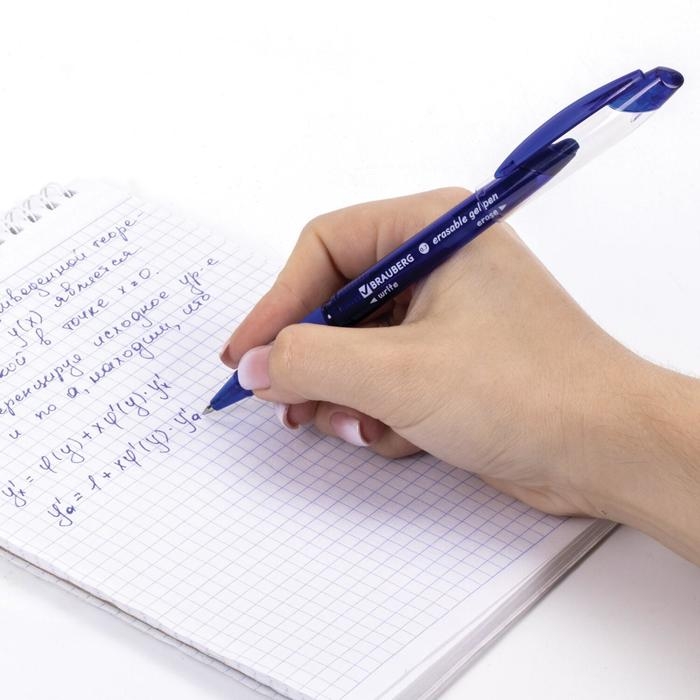 иведенной теоре-
y(x) является
кой в точке x=0.
еренцируя исходное ур-е
и по a, находим, что
y'ₓ = φ(y) + xφ'(y)·y'ₓ
y'ₐ = 1 + xφ'(y)·y'ₐ
BRAUBERG 0.7 erasable gel pen
write erase